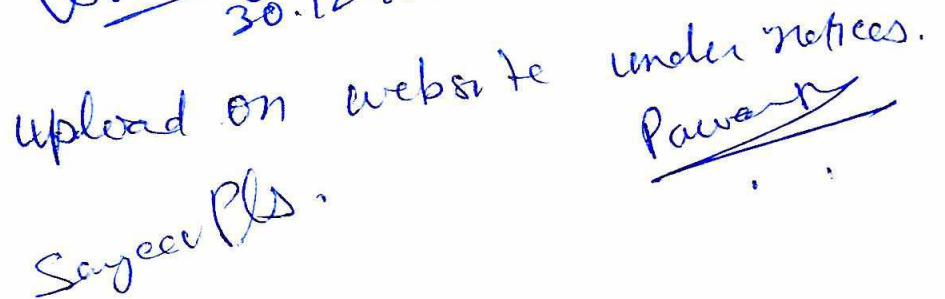 30.12
upload on website under notices.
Pawan
Sanjeev Pls.